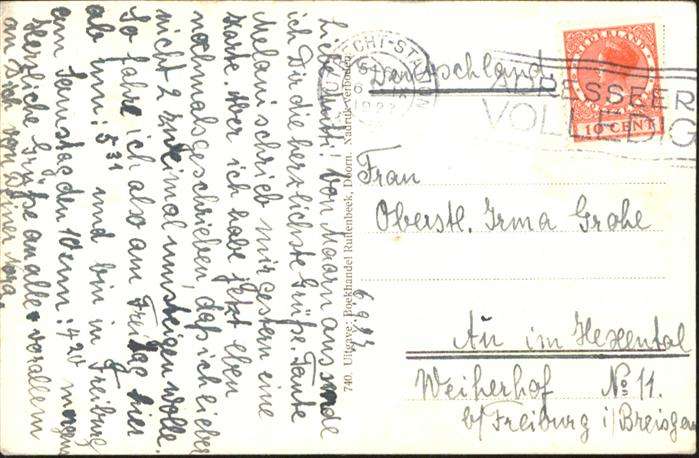 Liebe Mutti! Von Maarn aus sende
ich Dir die herzlichste Grüße. Tante
Melani schrieb mir gestern eine
Karte. Aber ich habe jetzt eben
nochmals geschrieben, daß ich lieber
nicht 2 zweimal umsteigen wolle.
So fahre ich also am Freitag hier
ab um: 5³¹ und bin in Freiburg
am Samstag den 10ten um: 4²⁰ morgen
Herzliche Grüße an alle + vor allem
an Dich von Deiner
740. Uitgave: Boekhandel Ruitenbeek, Doorn. Nadruk verboden
6.9.32.
UTRECHT-STATION
NEDERLAND
10 CENT
ADRESSEER
VOLLEDIG
Deutschland.
Frau
Oberstl. Irma Grohe
Au im Hexental
Weiherhof No 11.
b/ Freiburg i/ Breisgau